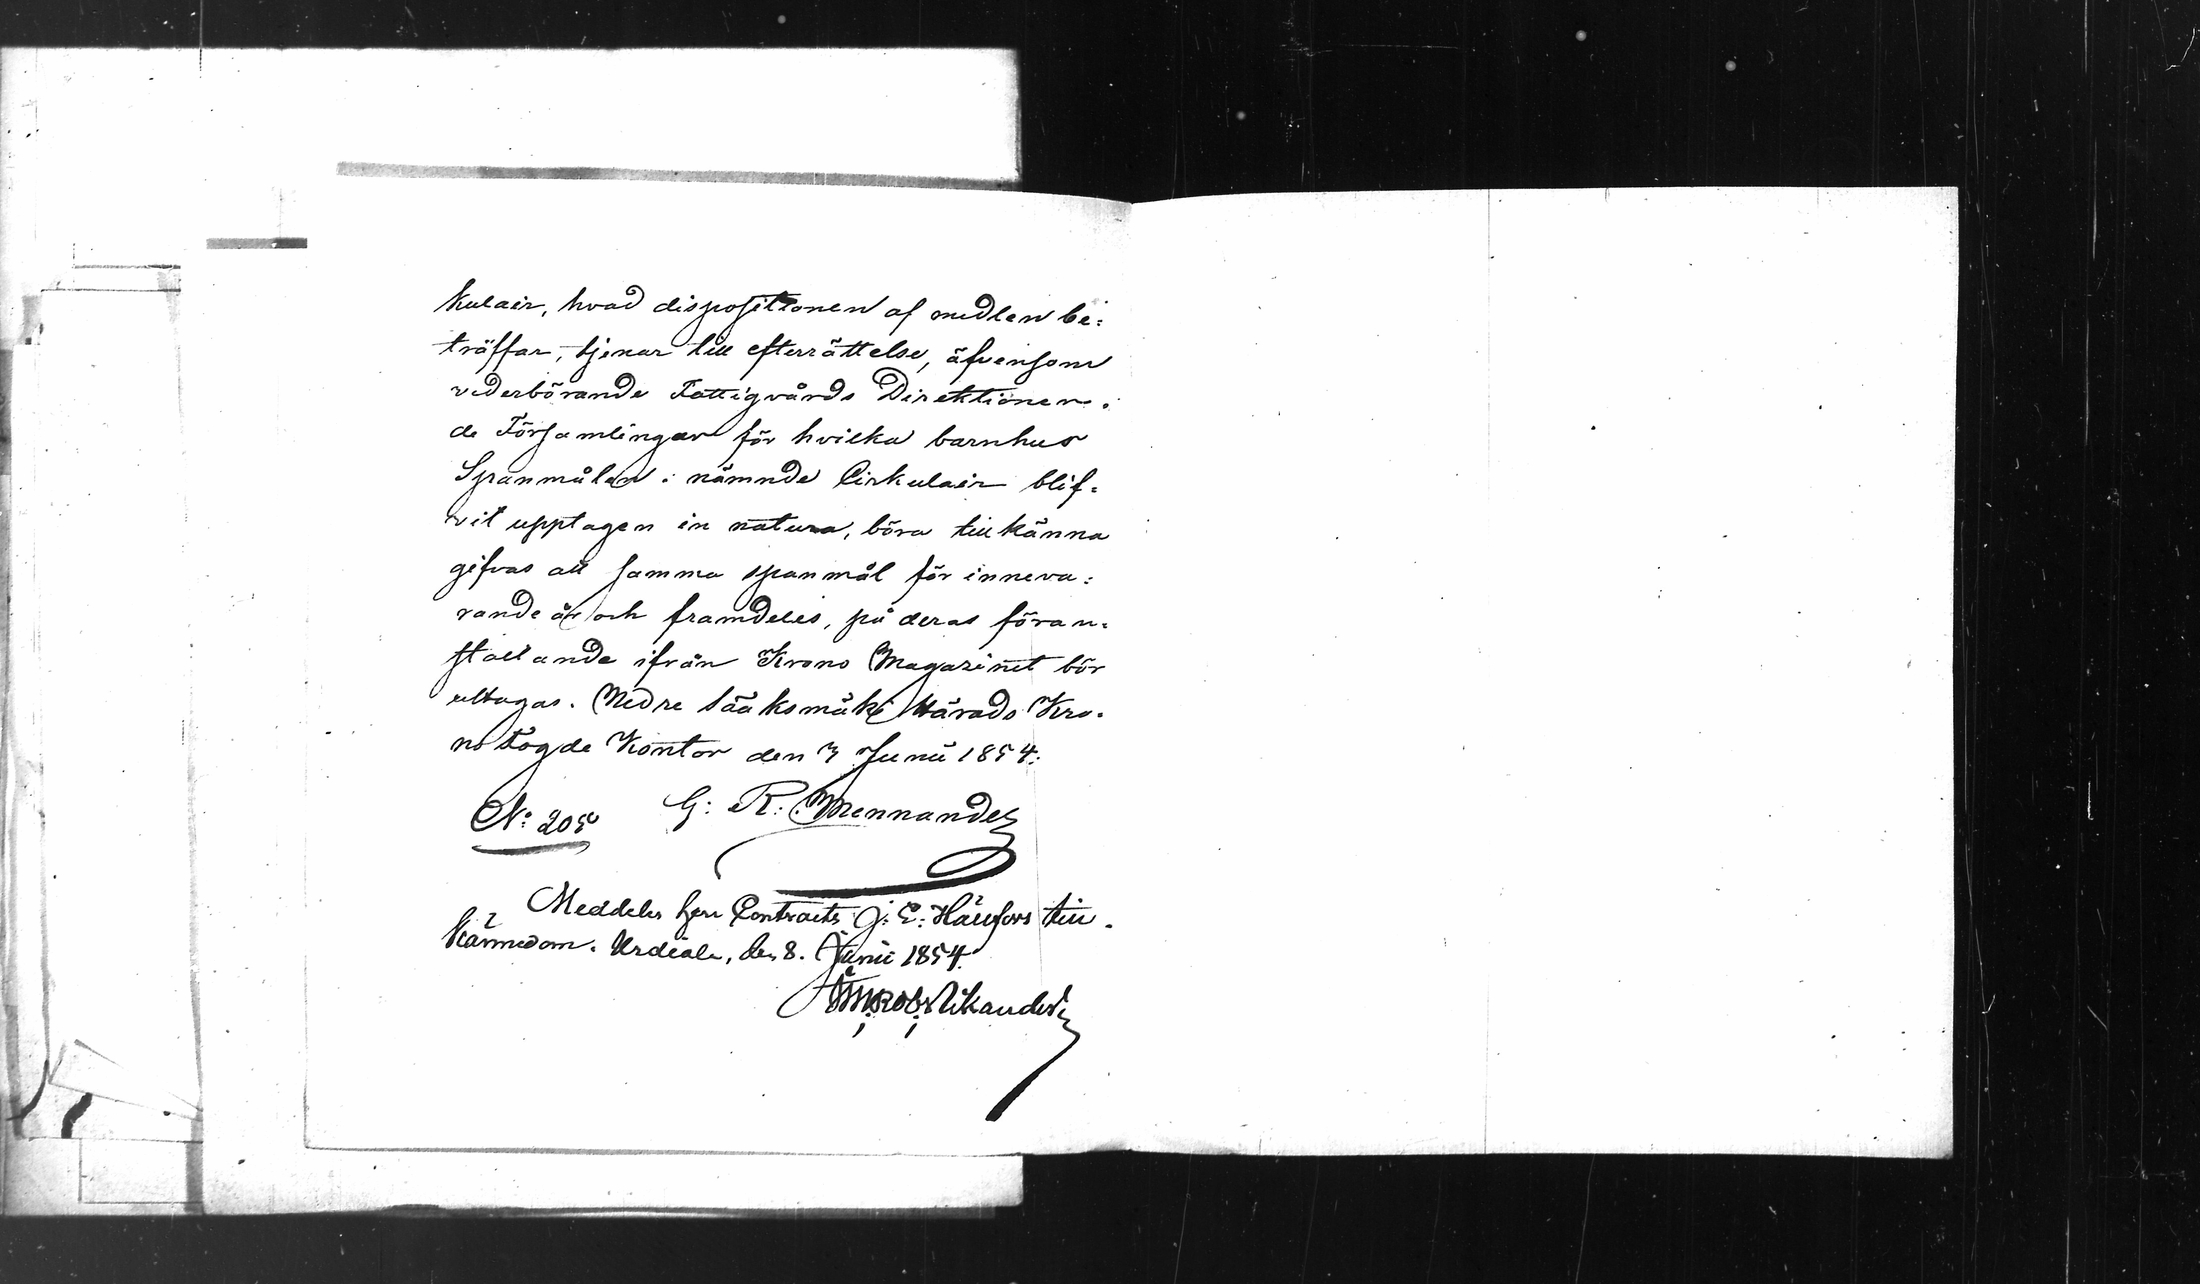 kulair, hvad dispositionen af medlen be:
träffar, tjenar till efterrättelse, äfvensom
vederbörande Fattigvårds Direktioner i
de Församlingar för hvilka barnhus
Spanmålen i nämnde Cirkulair blif:
vit upptagen in natura, böra tillkänna
gifvas att samma spanmål för inneva:
rande år och framdeles, på deras föran:
staltande ifrån Krono Magazinet bör
uttagas. Nedre Sääksmäki Härads Kro:
no Fogde Kontor den 3 Junii 1854:
No: 205 G: R: Mennander
Meddelas herr J: E: till
kännedom. Urdiala, den 8. Junii 1854.
Rob: Nikander